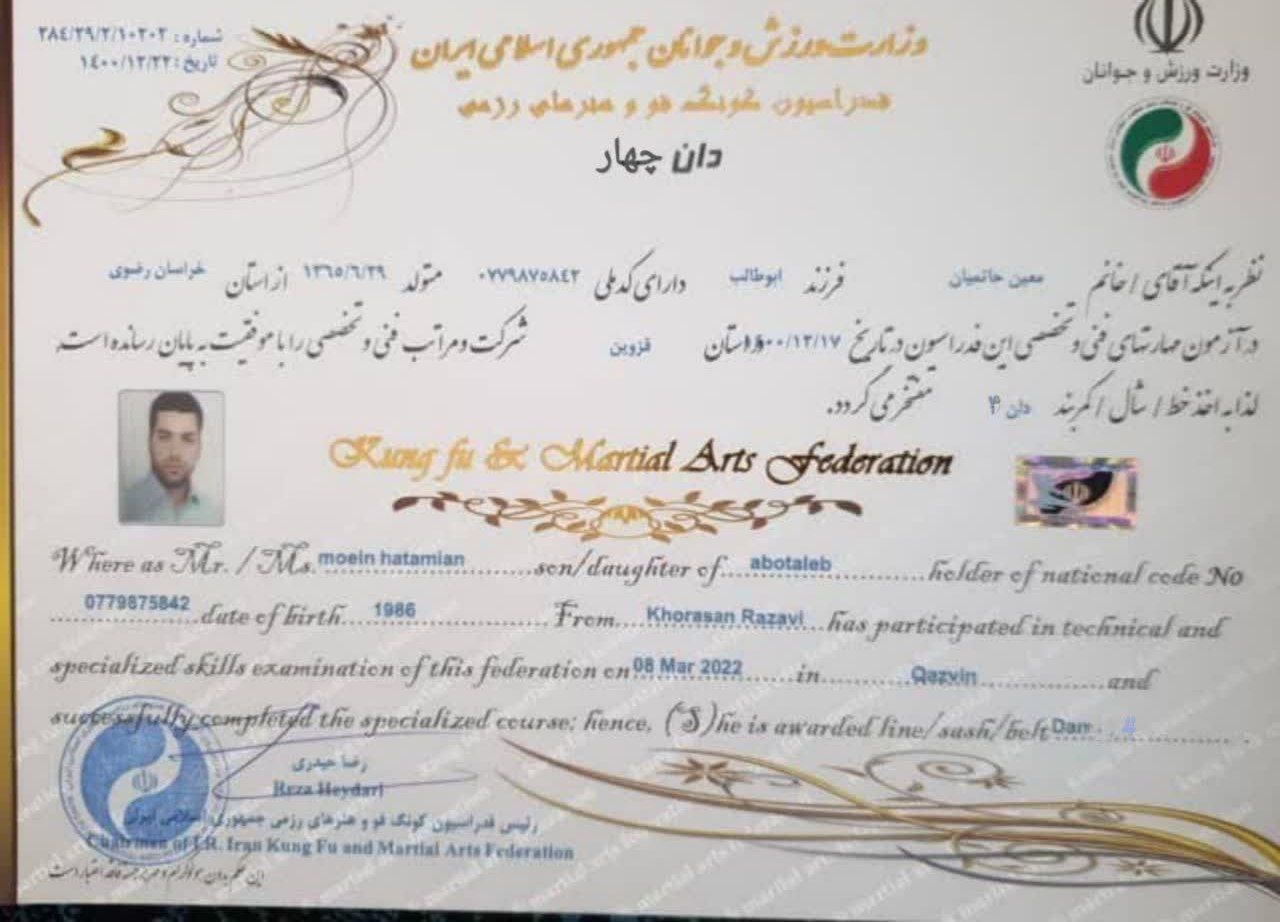 شماره : ٢٨٤/٢٩/٢/١٠٢٠٢
تاریخ : ١٤٠٠/١٢/٢٢
وزارت ورزش و جوانان جمهوری اسلامی ایران
فدراسیون کونگ فو و هنرهای رزمی
دان چهار
وزارت ورزش و جوانان
نظر به اینکه آقای / خانم معین حاتمیان فرزند ابوطالب دارای کد ملی ٠٧٧٩٨٧٥٨٤٢ متولد ١٣٦٥/٦/٢٩ از استان خراسان رضوی
در آزمون مهارتهای فنی و تخصصی این فدراسیون در تاریخ ١٤٠٠/١٢/١٧ در استان قزوین شرکت و مراتب فنی و تخصصی را با موفقیت به پایان رسانده است.
لذا به اخذ خط / شال / کمربند دان ۴ مفتخر می گردد.
Kung fu & Martial Arts Federation
Where as Mr. / Ms. moein hatamian son/daughter of abotaleb holder of national code No
0779875842 date of birth 1986 From Khorasan Razavi has participated in technical and
specialized skills examination of this federation on 08 Mar 2022 in Qazvin and
successfully completed the specialized course; hence, (S)he is awarded line/sash/belt Dan 4
رضا حیدری
Reza Heydari
رئیس فدراسیون کونگ فو و هنرهای رزمی جمهوری اسلامی ایران
Chairman of I.R. Iran Kung Fu and Martial Arts Federation